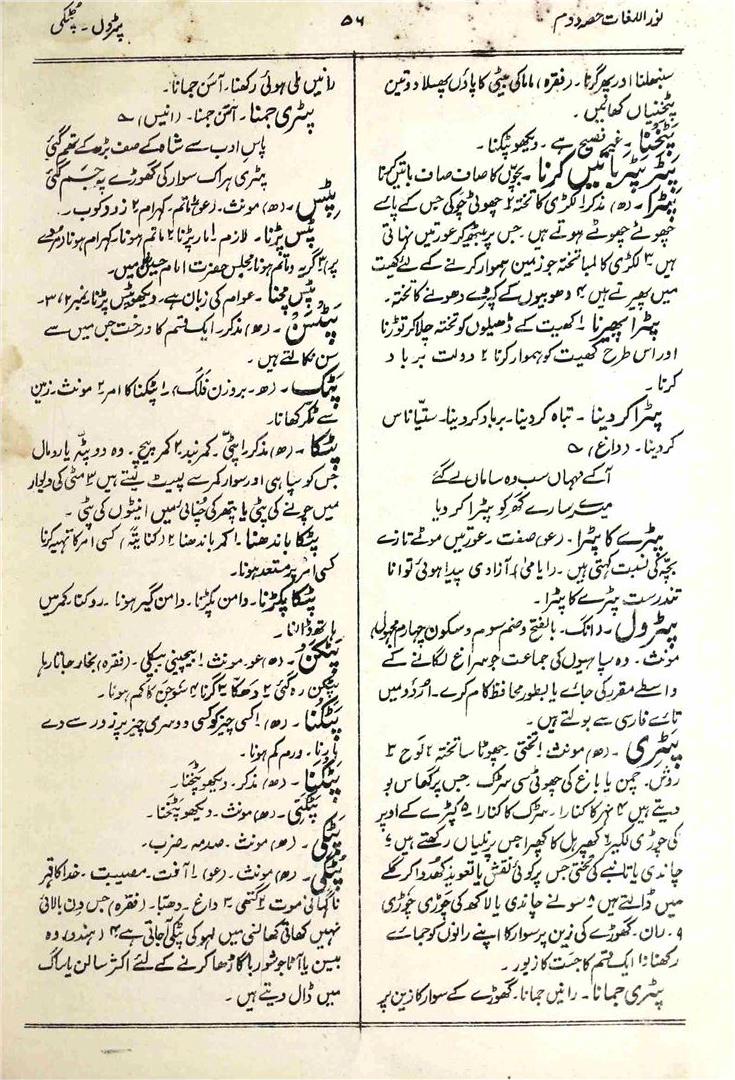 نور اللغات حصہ دوم
۵۶
پٹرول ۔ پٹکی
سنبھلنا اور پھر گرنا ۔ (فقرہ) ماما کی بیٹی کا پاؤں پھسلا دو تین
پٹخنیاں کھائیں ۔
پٹخنا ۔ غیر فصیح ہے ۔ دیکھو پٹکنا ۔
پٹر پٹر باتیں کرنا ۔ بچوں کا صاف صاف باتیں کرنا
پٹرا ۔ (ھ) مذکر ۱ لکڑی کا تختہ ۲ چھوٹی چوکی جس کے پائے
چھوٹے چھوٹے ہوتے ہیں ۔ جس پر بیٹھ کر عورتیں نہاتی
ہیں ۳ لکڑی کا لمبا تختہ جو زمین ہموار کرنے کے لئے کھیت
میں پھیرتے ہیں ۴ دھوبیوں کے کپڑے دھونے کا تختہ ۔
پٹرا پھیرنا ۱ کھیت کے ڈھیلوں کو تختہ چلا کر توڑنا
اور اس طرح کھیت کو ہموار کرنا ۲ دولت برباد
کرنا ۔
پٹرا کر دینا ۔ تباہ کر دینا ۔ برباد کر دینا ۔ ستیاناس
کر دینا ۔ (داغ) ؎
آکے نہاں سب وہ سامان لے گئے
میرے سارے گھر کو پٹرا کر دیا
پٹرے کا پٹرا ۔ (عو) صفت ۔ عورتیں موٹے تازے
بچہ کی نسبت کہتی ہیں ۔ (ایامی) آزادی پیدا ہوئی توانا
تندرست پٹرے کا پٹرا ۔
پٹرول ۔ (انگ ۔ بالفتح و ضم سوم و سکون چہارم مجہول)
مونث ۔ وہ سپاہیوں کی جماعت جو سراغ لگانے کے
واسطے مقرر کی جائے یا بطور محافظ کام کرے ۔ اردو میں
تائے فارسی سے بولتے ہیں ۔
پٹری ۔ (ھ) مونث ۱ تختی ۔ چھوٹا سا تختہ ۲ لوح ۳
روش ۔ چمن یا باغ کی چھوٹی سی سڑک ۔ جس پر گھاس بو
دیتے ہیں ۴ نہر کا کنارا ۔ سڑک کا کنارا ۵ کپڑے کے اوپر
کی چوڑی لکیر ۶ کھپریل کا کھپرا جس پر نلیاں رکھتے ہیں ۷
چاندی یا تانبے کی تختی جس پر کوئی نقش یا تعویذ کھدوا کر گلے
میں ڈالتے ہیں ۸ سونے چاندی یا لاکھ کی چوڑی چوڑی
۹ ران ۔ گھوڑے کی زین پر سوار کا اپنے رانوں کو جمائے
رکھنا ۱۰ ایک قسم کا جست کا زیور ۔
پٹری جمانا ۔ رانیں جمانا ۔ گھوڑے کے سوار کا زین پر
رانیں ملی ہوئی رکھنا ۔ آسن جمانا ۔
پٹری جمنا ۔ آسن جمنا ۔ (انیس) ؎
پاس ادب سے شاہ کے صف بڑھ کے تھم گئی
پٹری ہر اک سوار کی گھوڑے پہ جم گئی
پٹس ۔ (ھ) مونث ۔ (عو) ماتم ۔ کہرام ۲ زد و کوب ۔
پٹس پڑنا ۔ لازم ۱ مار پڑنا ۲ ماتم ہونا ۔ کہرام ہونا (مردے
پر) ۳ گریہ و ماتم ہونا مجلس حضرت امام حسینؑ میں ۔
پٹس مچنا ۔ عوام کی زبان ہے ۔ دیکھو پٹس پڑنا نمبر ۲ و ۳ ۔
پٹسن ۔ (ھ) مذکر ۔ ایک قسم کا درخت جس میں سے
سن نکالتے ہیں ۔
پٹک ۔ (ھ ۔ بروزن فلک) ۱ پٹکنا کا امر ۲ مونث ۔ زمین
سے ٹکر کھانا ۔
پٹکا ۔ (ھ) مذکر ۱ پٹی ۔ کمر بند ۲ کمر پیچ ۔ وہ دوپٹہ یا رومال
جس کو سپاہی اور سوار کمر سے لپیٹ لیتے ہیں ۳ مٹی کی دیوار
میں چونے کی پٹی یا پتھر کی چنائی میں اینٹوں کی پٹی ۔
پٹکا باندھنا ۱ کمر باندھنا ۲ (کنایۃً) کسی امر کا تہیہ کرنا
کسی امر پر مستعد ہونا ۔
پٹکا پکڑنا ۔ دامن پکڑنا ۔ دامن گیر ہونا ۔ روکنا ۔ کمر میں
ہاتھ ڈالنا ۔
پٹکن ۔ (ھ) عو ۔ مونث ۱ بیچینی بیکلی ۔ (فقرہ) بخار جاتا رہا
پٹکن رہ گئی ۲ دھکا ۳ گرنا ۴ سوجن کا کم ہونا ۔
پٹکنا ۔ (ھ) ۱ کسی چیز کو کسی دوسری چیز پر زور سے دے
مارنا ۔ ورم کم ہونا ۔
پٹکنا ۔ (ھ) مذکر ۔ دیکھو پٹخنا ۔
پٹکنی ۔ (ھ) مونث ۔ دیکھو پٹخنا ۔
پٹکی ۔ (ھ) مونث ۔ صدمہ ۔ ضرب ۔
پٹکی ۔ (ھ) مونث ۔ (عو) ۱ آفت ۔ مصیبت ۔ خدا کا قہر
ناگہانی موت ۲ گتھی ۳ داغ ۔ دھبا ۔ (فقرہ) جس دن بالائی
نہیں کھاتی کھانسی میں لہو کی پٹکی آجاتی ہے ۴ (ہندو) وہ
بیسن یا آٹا جو شوربا گاڑھا کرنے کے لئے اکثر سالن یا ساگ
میں ڈال دیتے ہیں ۔